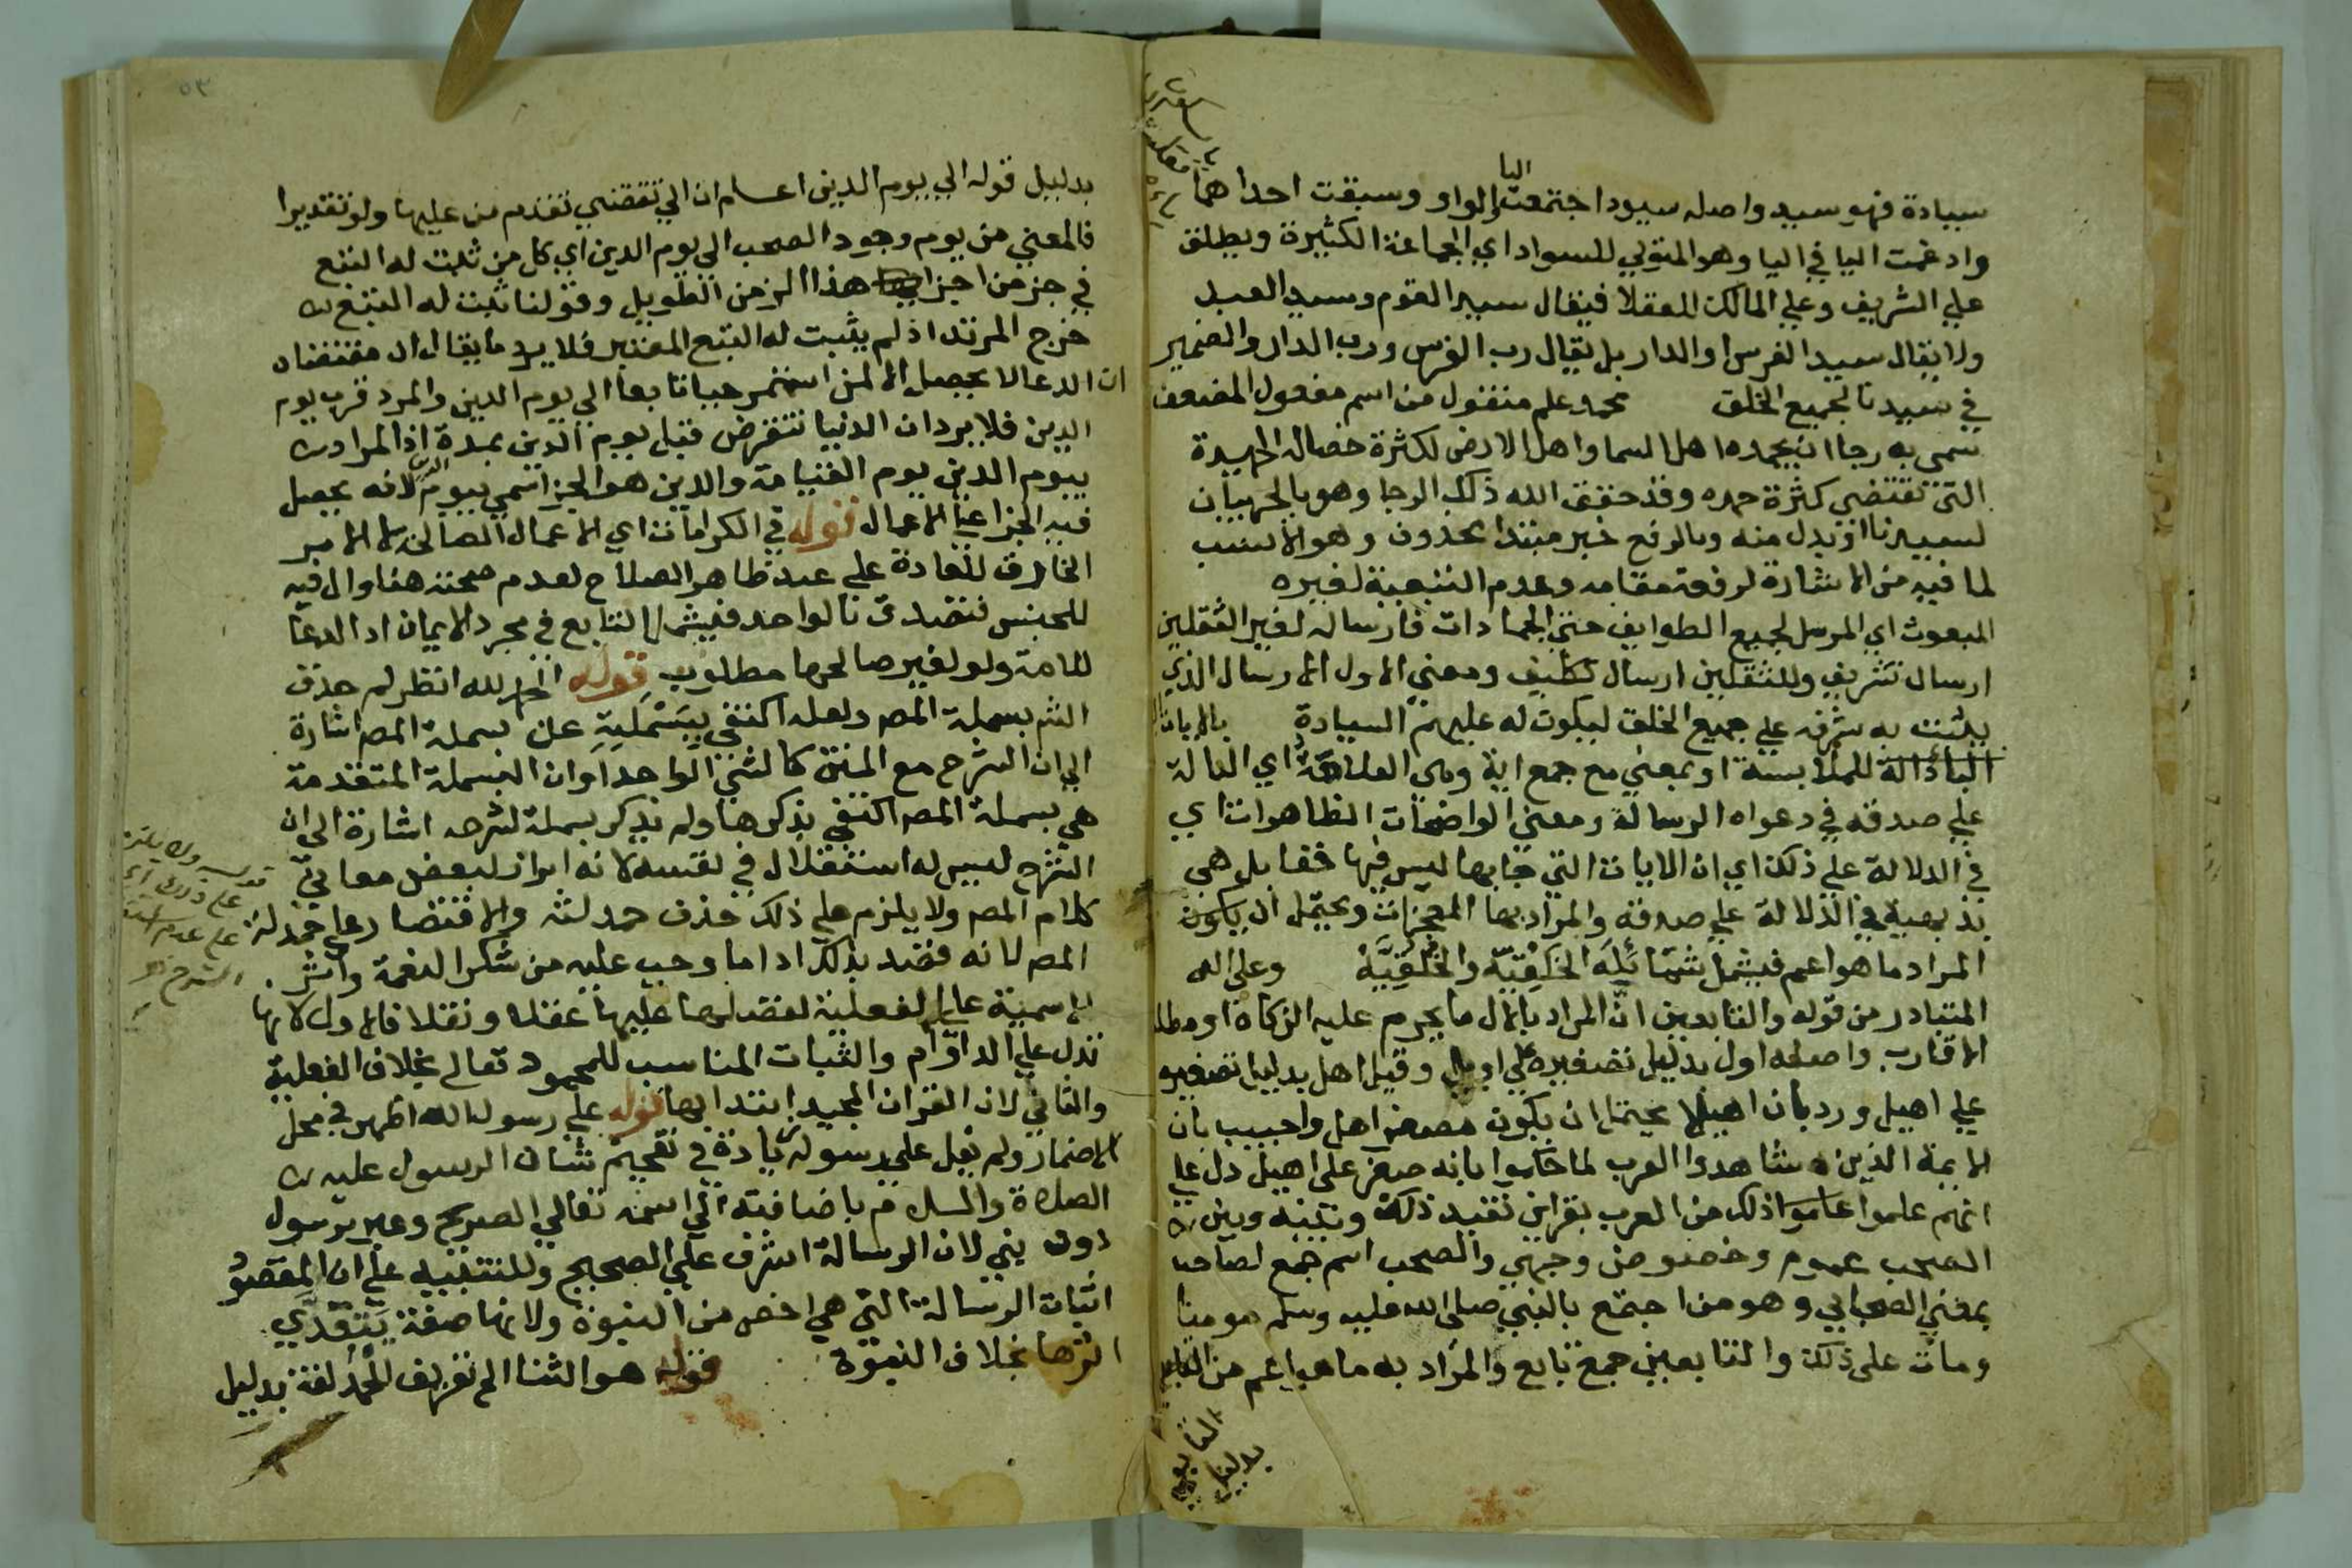 سيادة فهو سيد واصله سيود اجتمعت اليا والواو وسبقت احداهما
وادغمت اليا في اليا وهو المتولي للسواد اي الجماعة الكثيرة ويطلق
علي الشريف وعلي المالك للعقلا فيقال سيد القوم وسيد العبد
ولا يقال سيد الفرس او الدار بل يقال رب الفرس ورب الدار والضمير
في سيدنا لجميع الخلق محمد علم منقول من اسم مفعول المضعف
سمي به رجا ان يحمده اهل السما واهل الارض لكثرة خصاله الحميدة
التي تقتضي كثرة حمده وقد حقق الله ذلك الرجا وهو بالجر بيان
لسيدنا او بدل منه وبالرفع خبر مبتدا محذوف وهو الانسب
لما فيه من الاشارة لرفعة مقامه وعدم التبعية لغيره
المبعوث اي المرسل لجميع الطوايف حتي الجمادات فارساله لغير الثقلين
ارسال تشريف وللثقلين ارسال تكليف ومعني الاول الارسال الذي
يثبت به شرفه علي جميع الخلق ليكون له عليهم السيادة بالايات
البا دالة للملابسة او بمعني مع جمع اية وهي العلامة اي الدالة
علي صدقه في دعواه الرسالة ومعني الواضحات الظاهرات اي
في الدلالة علي ذلك اي ان الايات التي جا بها ليس فيها خفا بل هي
بديهية في الدلالة علي صدقه والمراد بها المعجزات ويحتمل ان يكون
المراد ما هو اعم فيشمل شمائله الخلقية والخلقية وعلي اله
المتبادر من قوله والتابعين ان المراد بالال ما يحرم عليه الزكاة او مطلق
الاقارب واصله اول بدليل تصغيره علي اويل وقيل اهل بدليل تصغيره
علي اهيل ورد بان اهيلا يحتمل ان يكون مصغر اهل واجيب بان
الايمة الذين شاهدوا العرب لما حكموا بانه صغر علي اهيل دل علي
انهم علموا ذلك من العرب بقراين تفيد ذلك وبينه وبين
الصحب عموم وخصوص وجهي والصحب اسم جمع لصاحب
بمعني الصحابي وهو من اجتمع بالنبي صلي الله عليه وسلم مومنا
ومات علي ذلك والتابعين جمع تابع والمراد به ما هو اعم من التابع
بدليل
بدليل قوله الي يوم الدين اعلم ان الي تقتضي تقدم من عليها ولو تقديرا
فالمعني من يوم وجود الصحب الي يوم الدين اي كل من ثبت له التبع
في جز من اجزا هذا الزمن الطويل وقولنا ثبت له التبع
خرج المرتد اذ لم يثبت له التبع المعتبر فلا يرد ما يقال ان مقتضاه
ان الدعا لا يحصل الا لمن استمر حيا تابعا الي يوم الدين والمراد قرب يوم
الدين فلا يرد ان الدنيا تنقرض قبل يوم الدين بمدة اذ المراد
بيوم الدين يوم القيامة والدين هو الجزا سمي بيوم الدين لانه يحصل
فيه الجزا علي الاعمال قوله في الكرامات اي الاعمال الصالحة لا الامر
الخارق للعادة علي عبد ظاهر الصلاح لعدم صحته هنا وال فيه
للجنس فتصدق بالواحد فيشمل التابع في مجرد الايمان اذ الدعا
للامة ولو لغير صالحها مطلوب قوله الحمد لله انظر لم حذف
الش بسملة المص ولعله اكتفي ببسملته عن بسملة المص اشارة
الي ان الشرح مع المتن كالشي الواحد او ان البسملة المتقدمة
هي بسملة المص اكتفي بذكرها ولم يذكر بسملة لشرحه اشارة الي ان
الشرح ليس له استقلال في نفسه لانه ابراز لبعض معاني
كلام المص ولا يلزم علي ذلك حذف حمدلته والاقتصار علي حمدلة
المص لانه قصد بذلك ادا ما وجب عليه من شكر النعمة واثر
الاسمية علي الفعلية لفضلها عليها عقلا ونقلا فالاول لانها
تدل علي الدوام والثبات المناسب للمحمود تعالي بخلاف الفعلية
والثاني لان القران المجيد ابتدا بها قوله علي رسول الله اظهر في محل
الاضمار ولم يقل علي رسوله زيادة في تفخيم شان الرسول عليه
الصلاة والسلام باضافته الي اسمه تعالي الصريح وعبر برسول
دون نبي لان الرسالة اشرف علي الصحيح وللتنبيه علي ان المقصود
اثبات الرسالة التي هي اخص من النبوة ولانها صفة يتعدي
اثرها بخلاف النبوة قوله هو الثنا الخ تعريف للحمد لغة بدليل